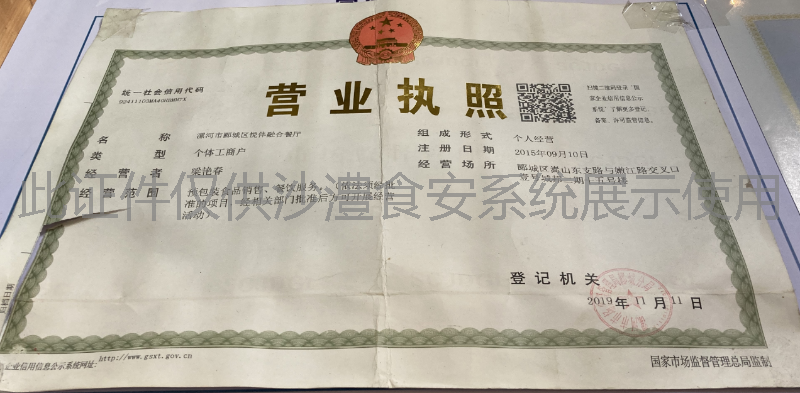 统一社会信用代码
营业执照
扫描二维码登录“国
家企业信用信息公示
系统”了解更多登记、
备案、许可监管信息。
名称 漯河市郾城区悦伴融合餐厅
类型 个体工商户
经营者 梁艳春
经营范围 预包装食品销售、餐饮服务。(依法须经批
准的项目，经相关部门批准后方可开展经营
活动)
组成形式 个人经营
注册日期 2015年09月10日
经营场所 郾城区嵩山东支路与嫩江路交叉口
此证件仅供沙澧食安系统展示使用
登记机关
2019年11月11日
企业信用信息公示系统网址:http://www.gsxt.gov.cn
国家市场监督管理总局监制